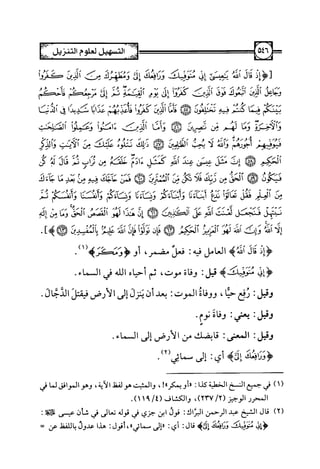 ٥٤٦
التسهيل لعلوم التنزيل
[﴿إِذْ قَالَ اللَّهُ يَاعِيسَىٰ إِنِّي مُتَوَفِّيكَ وَرَافِعُكَ إِلَيَّ وَمُطَهِّرُكَ مِنَ الَّذِينَ كَفَرُوا
وَجَاعِلُ الَّذِينَ اتَّبَعُوكَ فَوْقَ الَّذِينَ كَفَرُوا إِلَىٰ يَوْمِ الْقِيَامَةِ ثُمَّ إِلَيَّ مَرْجِعُكُمْ فَأَحْكُمُ
بَيْنَكُمْ فِيمَا كُنْتُمْ فِيهِ تَخْتَلِفُونَ ۝ فَأَمَّا الَّذِينَ كَفَرُوا فَأُعَذِّبُهُمْ عَذَابًا شَدِيدًا فِي الدُّنْيَا
وَالْآخِرَةِ وَمَا لَهُمْ مِنْ نَاصِرِينَ ۝ وَأَمَّا الَّذِينَ ءَامَنُوا وَعَمِلُوا الصَّالِحَاتِ
فَيُوَفِّيهِمْ أُجُورَهُمْ وَاللَّهُ لَا يُحِبُّ الظَّالِمِينَ ۝ ذَٰلِكَ نَتْلُوهُ عَلَيْكَ مِنَ الْآيَاتِ وَالذِّكْرِ
الْحَكِيمِ ۝ إِنَّ مَثَلَ عِيسَىٰ عِنْدَ اللَّهِ كَمَثَلِ ءَادَمَ خَلَقَهُ مِنْ تُرَابٍ ثُمَّ قَالَ لَهُ كُنْ
فَيَكُونُ ۝ الْحَقُّ مِنْ رَبِّكَ فَلَا تَكُنْ مِنَ الْمُمْتَرِينَ ۝ فَمَنْ حَاجَّكَ فِيهِ مِنْ بَعْدِ مَا جَاءَكَ
مِنَ الْعِلْمِ فَقُلْ تَعَالَوْا نَدْعُ أَبْنَاءَنَا وَأَبْنَاءَكُمْ وَنِسَاءَنَا وَنِسَاءَكُمْ وَأَنْفُسَنَا وَأَنْفُسَكُمْ ثُمَّ
نَبْتَهِلْ فَنَجْعَلْ لَعْنَتَ اللَّهِ عَلَى الْكَاذِبِينَ ۝ إِنَّ هَٰذَا لَهُوَ الْقَصَصُ الْحَقُّ وَمَا مِنْ إِلَٰهٍ
إِلَّا اللَّهُ وَإِنَّ اللَّهَ لَهُوَ الْعَزِيزُ الْحَكِيمُ ۝ فَإِنْ تَوَلَّوْا فَإِنَّ اللَّهَ عَلِيمٌ بِالْمُفْسِدِينَ ۝﴾].
﴿إِذْ قَالَ اللَّهُ﴾ العامل فيه: فعلٌ مضمر، أو ﴿وَمَكَرَ﴾(١).
﴿إِنِّي مُتَوَفِّيكَ﴾ قيل: وفاة موت، ثم أحياه الله في السماء.
وقيل: رُفِع حيًّا، ووفاةُ الموت: بعد أن يَنزِل إلى الأرض فيقتلُ الدَّجَّالَ.
وقيل: يعني: وفاةَ نومٍ.
وقيل: المعنى: قابضك من الأرض إلى السماء.
﴿وَرَافِعُكَ إِلَيَّ﴾ أي: إلى سمائي(٢).
(١) في جميع النسخ الخطية كذا: «أو يمكر»!، والمثبت هو لفظ الآية، وهو الموافق لما في
المحرر الوجيز (٢/ ٢٣٧)، والكشاف (٤/ ١١٩).
(٢) قال الشيخ عبد الرحمن البرَّاك: قولُ ابن جزي في قوله تعالى في شأن عيسى ﷺ:
﴿إِنِّي مُتَوَفِّيكَ وَرَافِعُكَ إِلَيَّ﴾ قال: أي: «إلى سمائي»، أقول: هذا عدولٌ باللفظ عن =